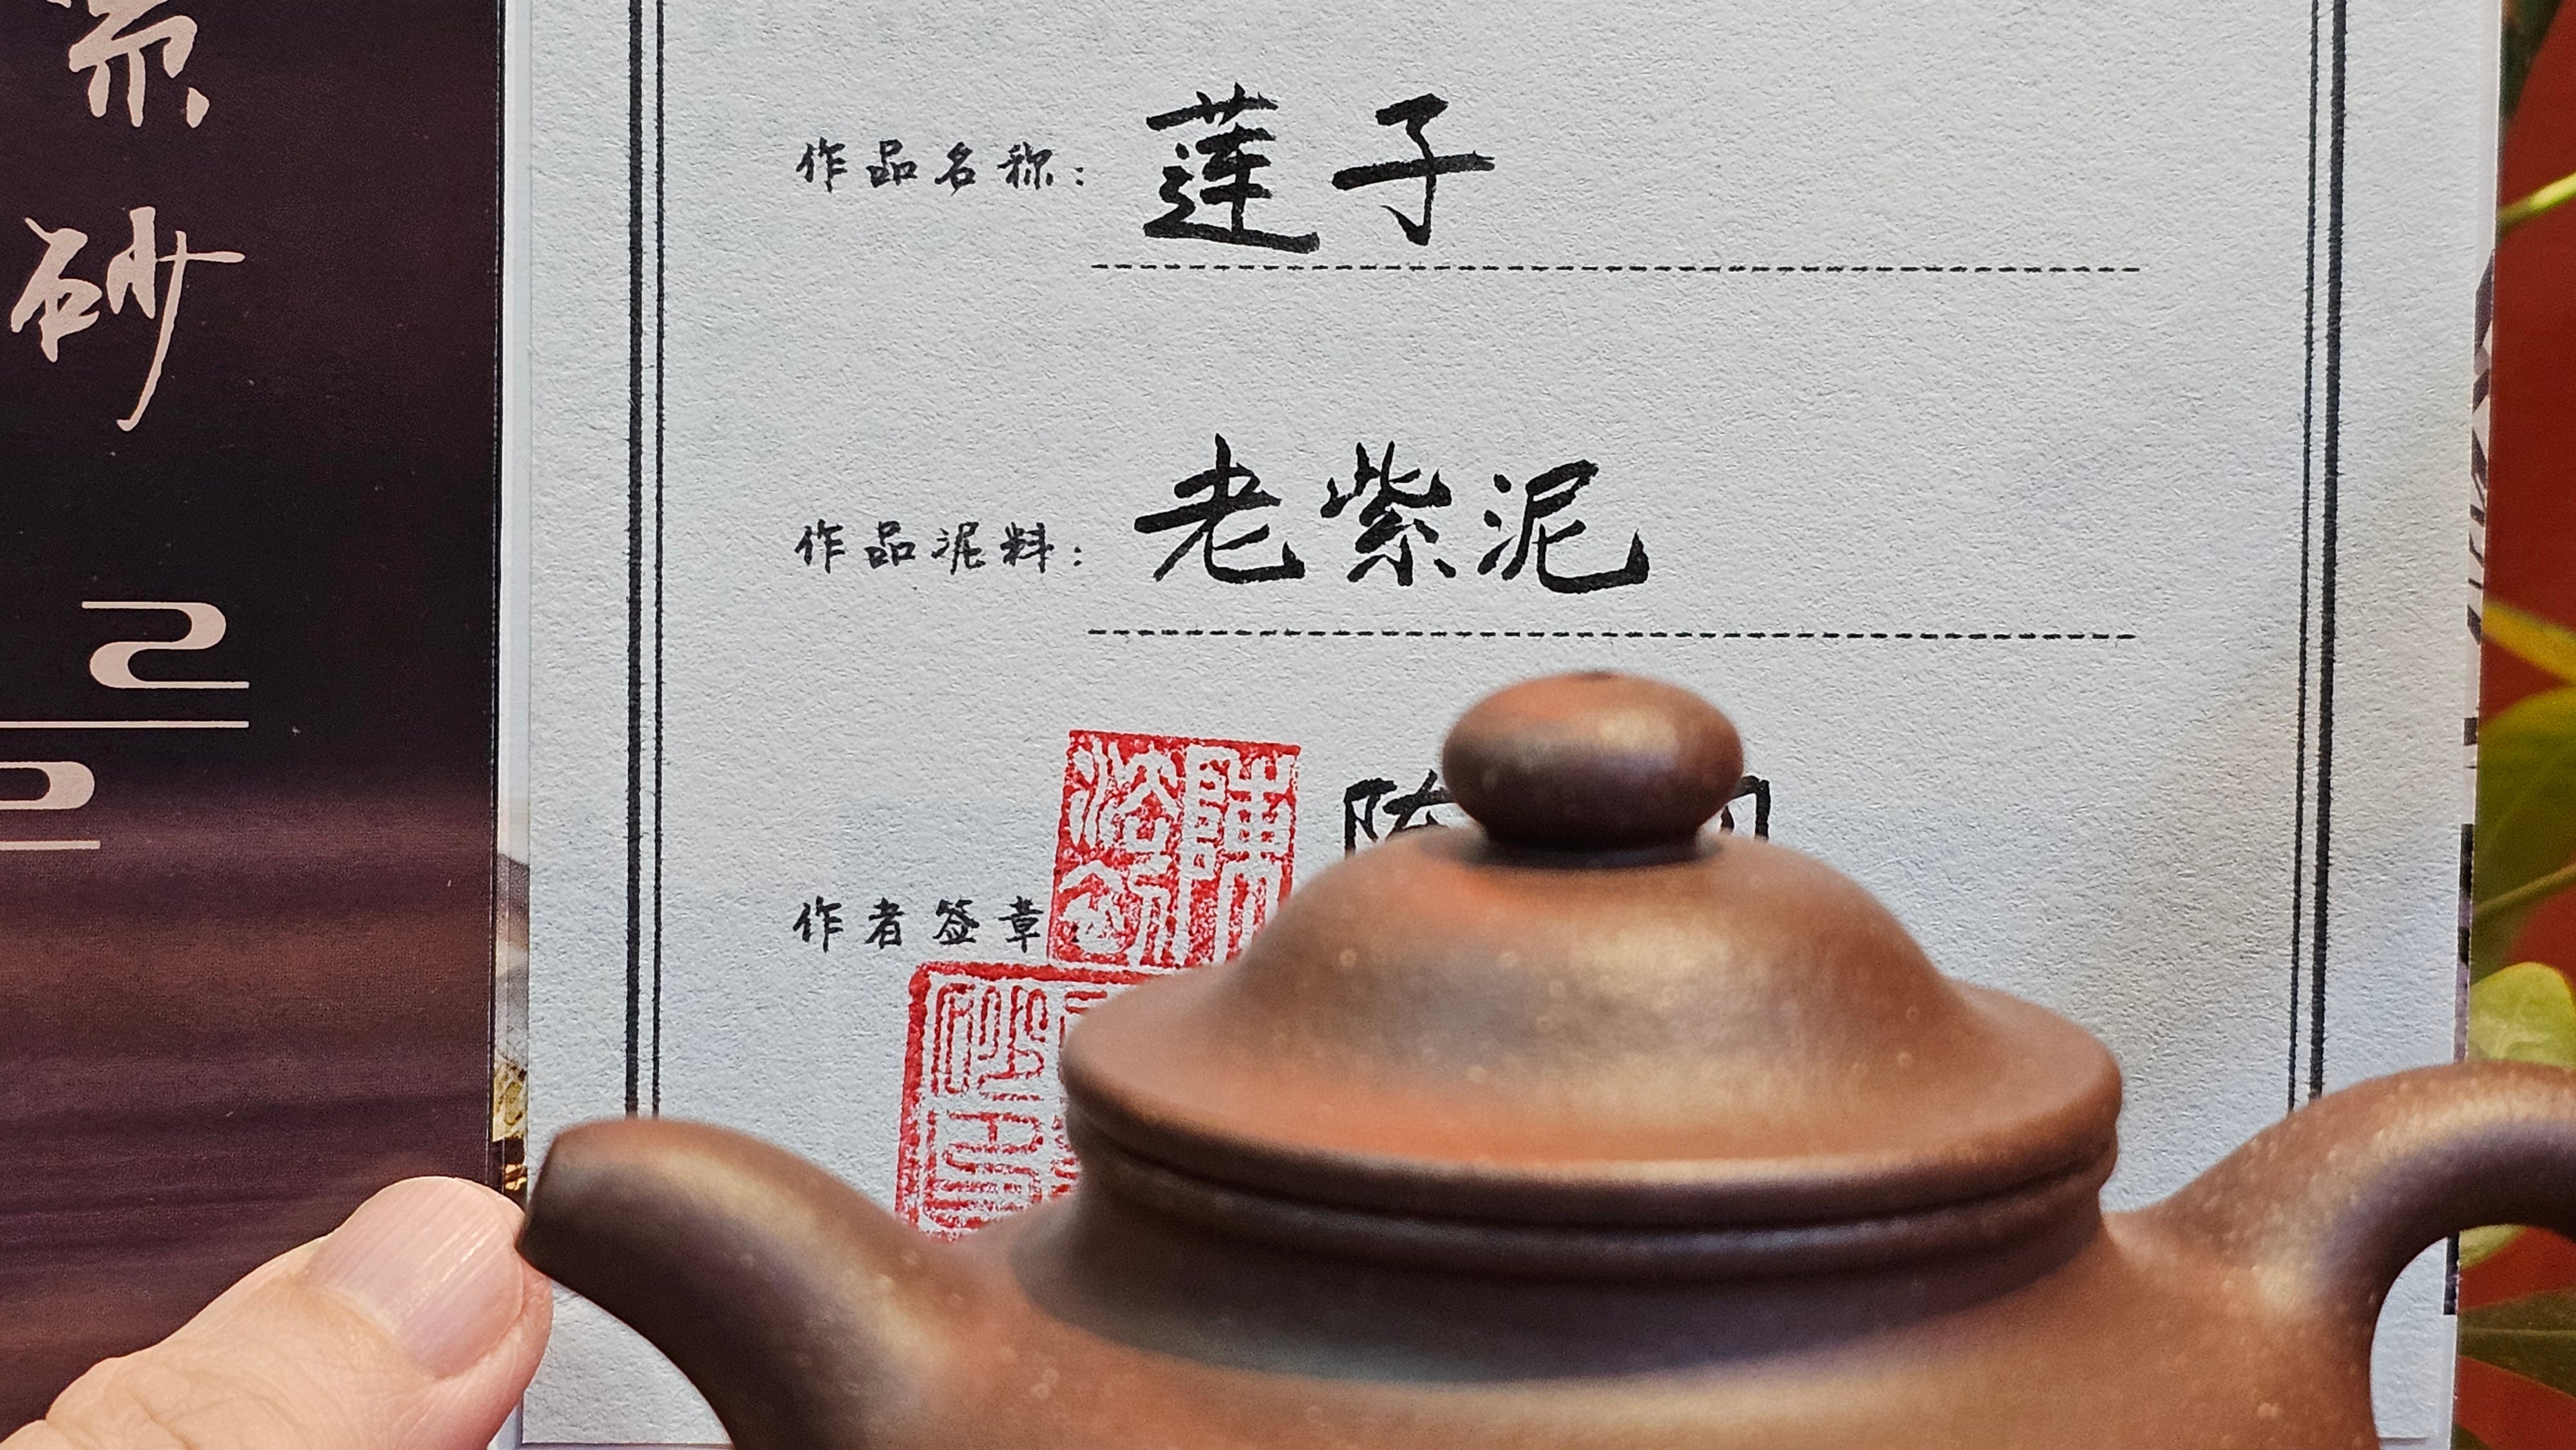 紫
砂
作品名称: 莲子
作品泥料: 老紫泥
作者签章